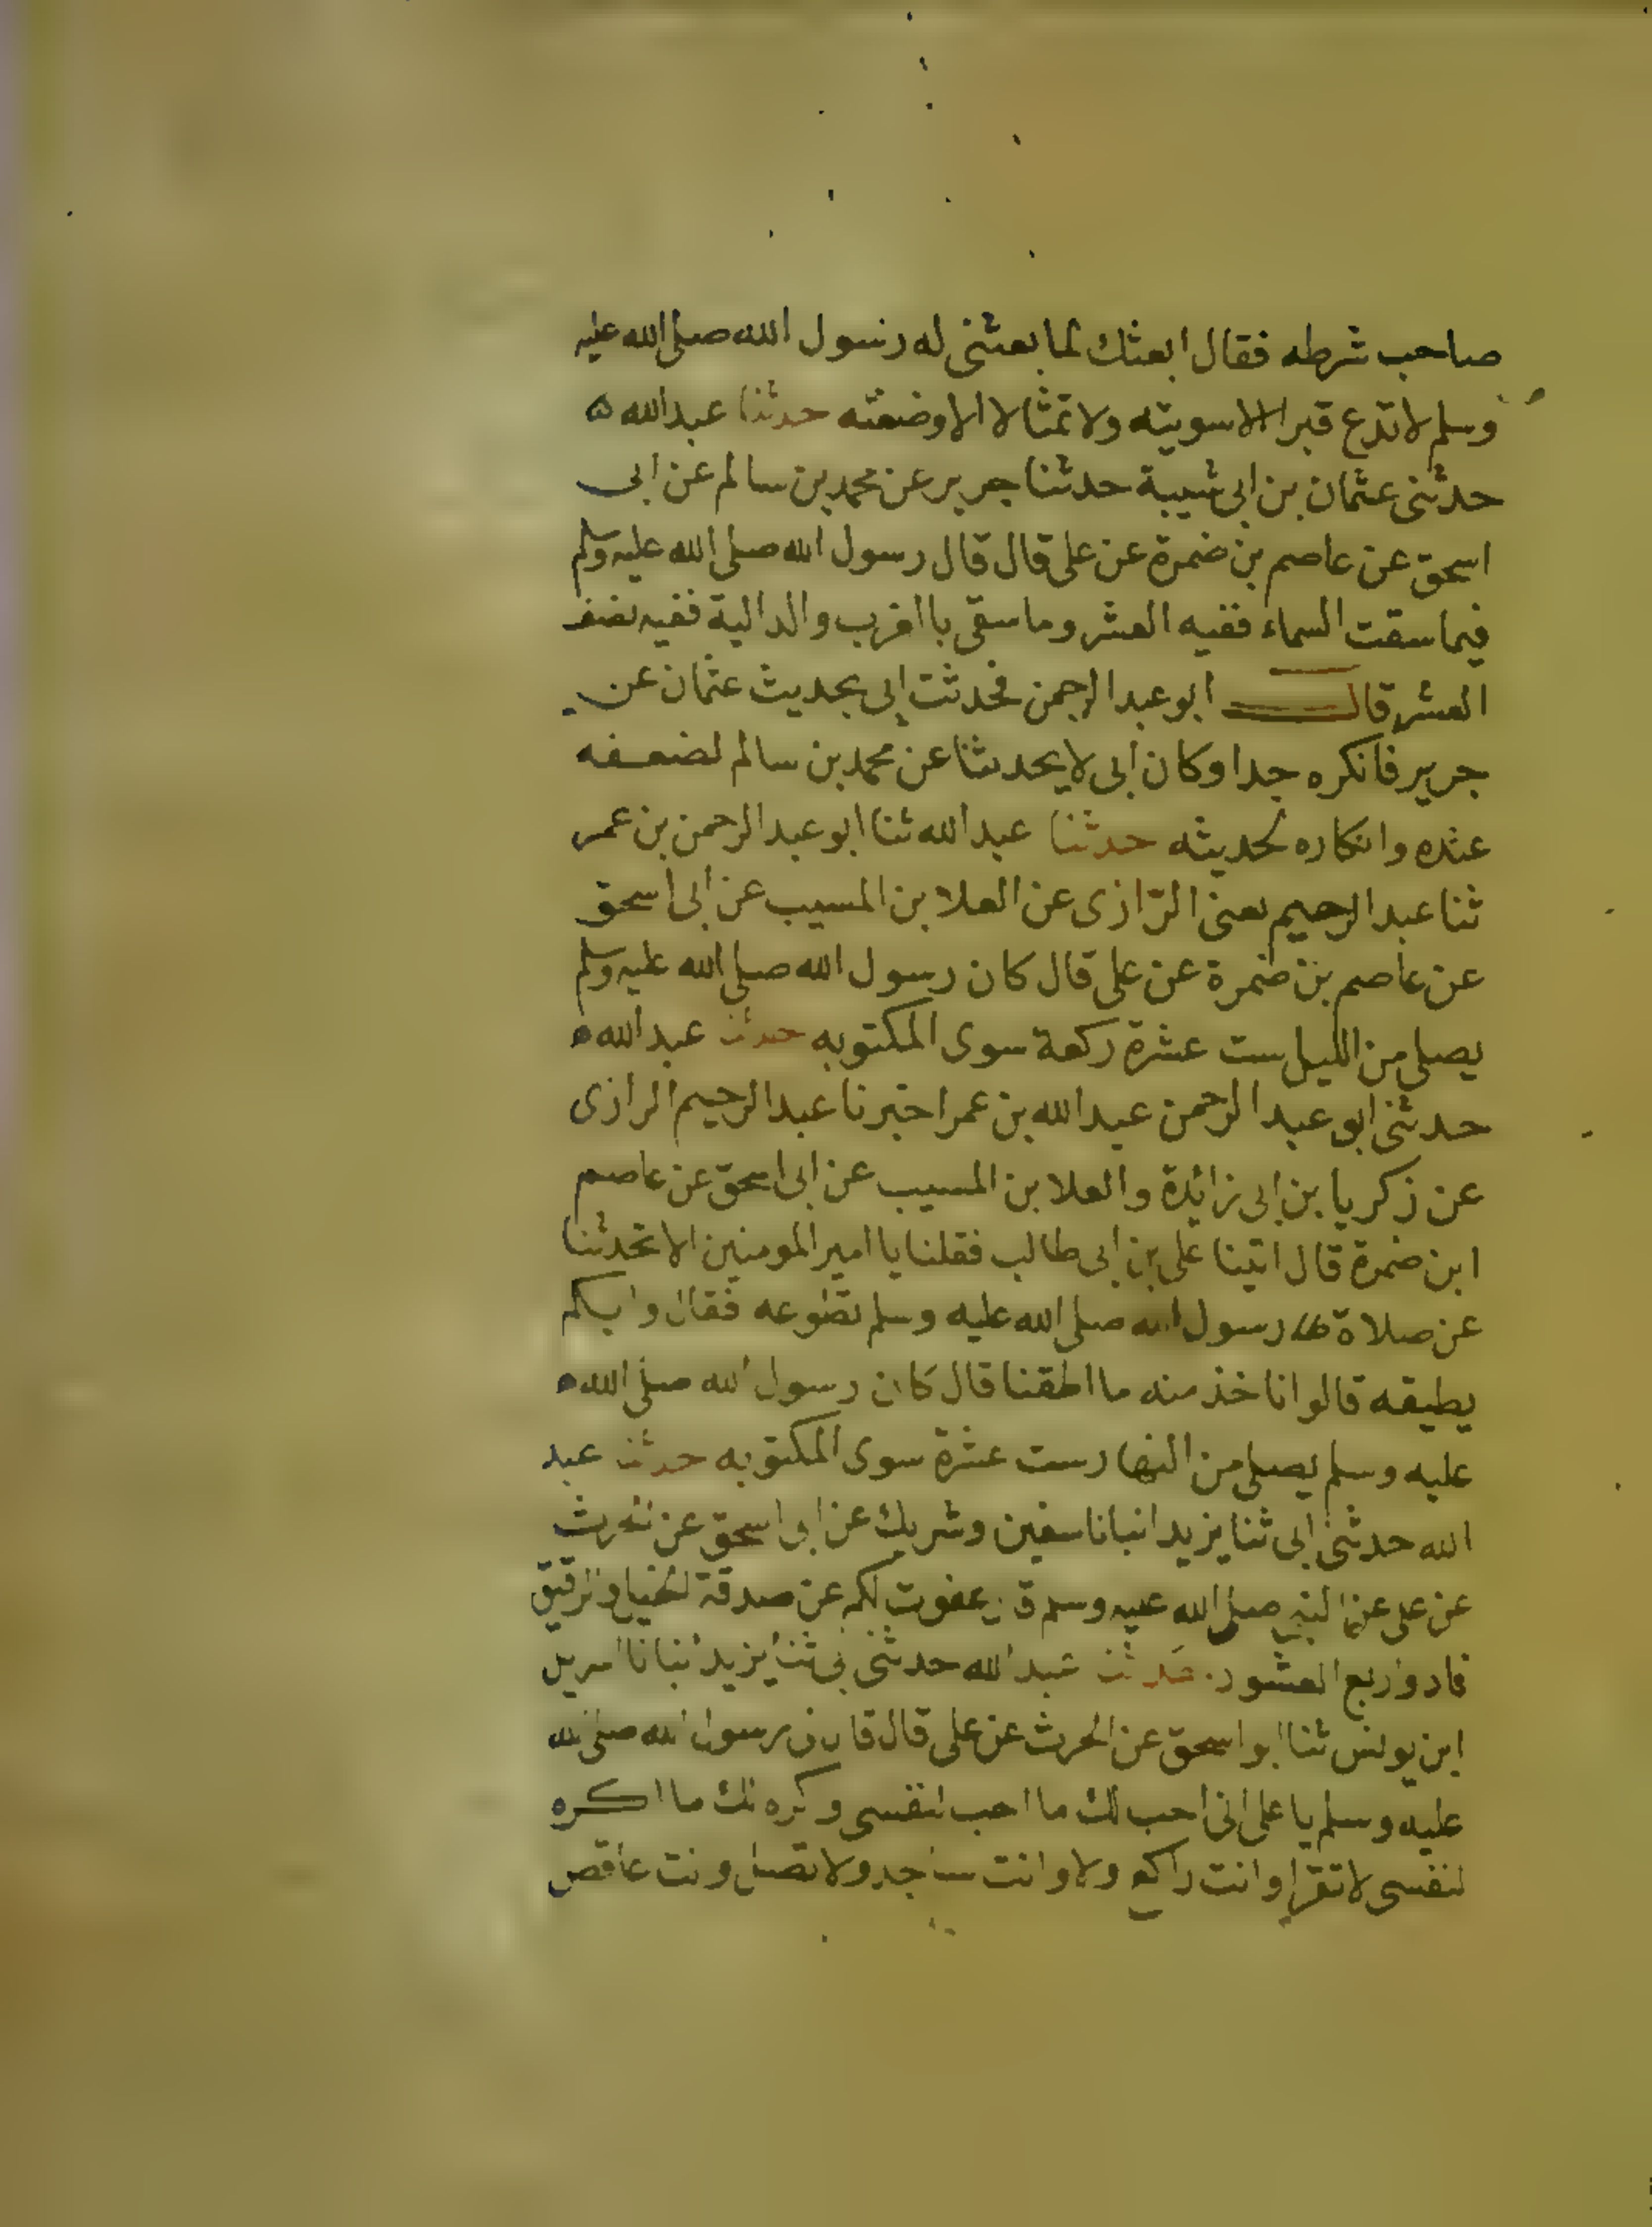 صاحب شرطه فقال ابعثك لما بعثنى له رسول الله صلى الله عليه
وسلم لا تدع قبرا الا سويته ولا تمثالا الا وضعته حدثنا عبد الله ه
حدثنى عثمان بن ابى شيبة حدثنا جرير عن محمد بن سالم عن ابى
اسحق عن عاصم بن ضمرة عن على قال قال رسول الله صلى الله عليه وسلم
فيما سقت السماء ففيه العشر وما سقى با الغرب والدالية ففيه نصف
العشر قال ابو عبد الرحمن فحدثت ابى بحديث عثمان عن
جرير فانكره جدا وكان ابى لا يحدثنا عن محمد بن سالم لضعفه
عنده وانكاره لحديثه حدثنا عبد الله ثنا ابو عبد الرحمن بن عمر
ثنا عبد الرحيم يعنى الرّازى عن العلا بن المسيب عن ابى اسحق
عن عاصم بن ضمرة عن على قال كان رسول الله صلى الله عليه وسلم
يصلى من الليل ست عشرة ركعة سوى المكتوبه حدثنا عبد الله ه
حدثنى ابو عبد الرحمن عبد الله بن عمر اخبرنا عبد الرحيم الرازى
عن زكريا بن ابى زائدة والعلا بن المسيب عن ابى اسحق عن عاصم
ابن ضمرة قال اتينا على بن ابى طالب فقلنا يا امير المومنين الا تحدثنا
عن صلاة رسول الله صلى الله عليه وسلم تطوعه فقال وايكم
يطيقه قالوا ناخذ منه ما اطقنا قال كان رسول الله صلى الله ه
عليه وسلم يصلى من النهار ست عشرة سوى المكتوبه حدثنا عبد
الله حدثنى ابى ثنا يزيد انبانا سفين وشريك عن ابى اسحق عن الحرث
عن على عن النبى صلى الله عليه وسلم قال عفوت لكم عن صدقة الخيل والرقيق
فادوا ربع العشور حدثنا عبد الله حدثنى ابى ثنا يزيد انبانا اسريل
ابن يونس ثنا ابو اسحق عن الحرث عن على قال قال لى رسول الله صلى الله
عليه وسلم يا على انى احب لك ما احب لنفسى وكره لك ما اكره
لنفسى لا تقرا وانت راكع ولا وانت ساجد ولا تصل وانت عاقص